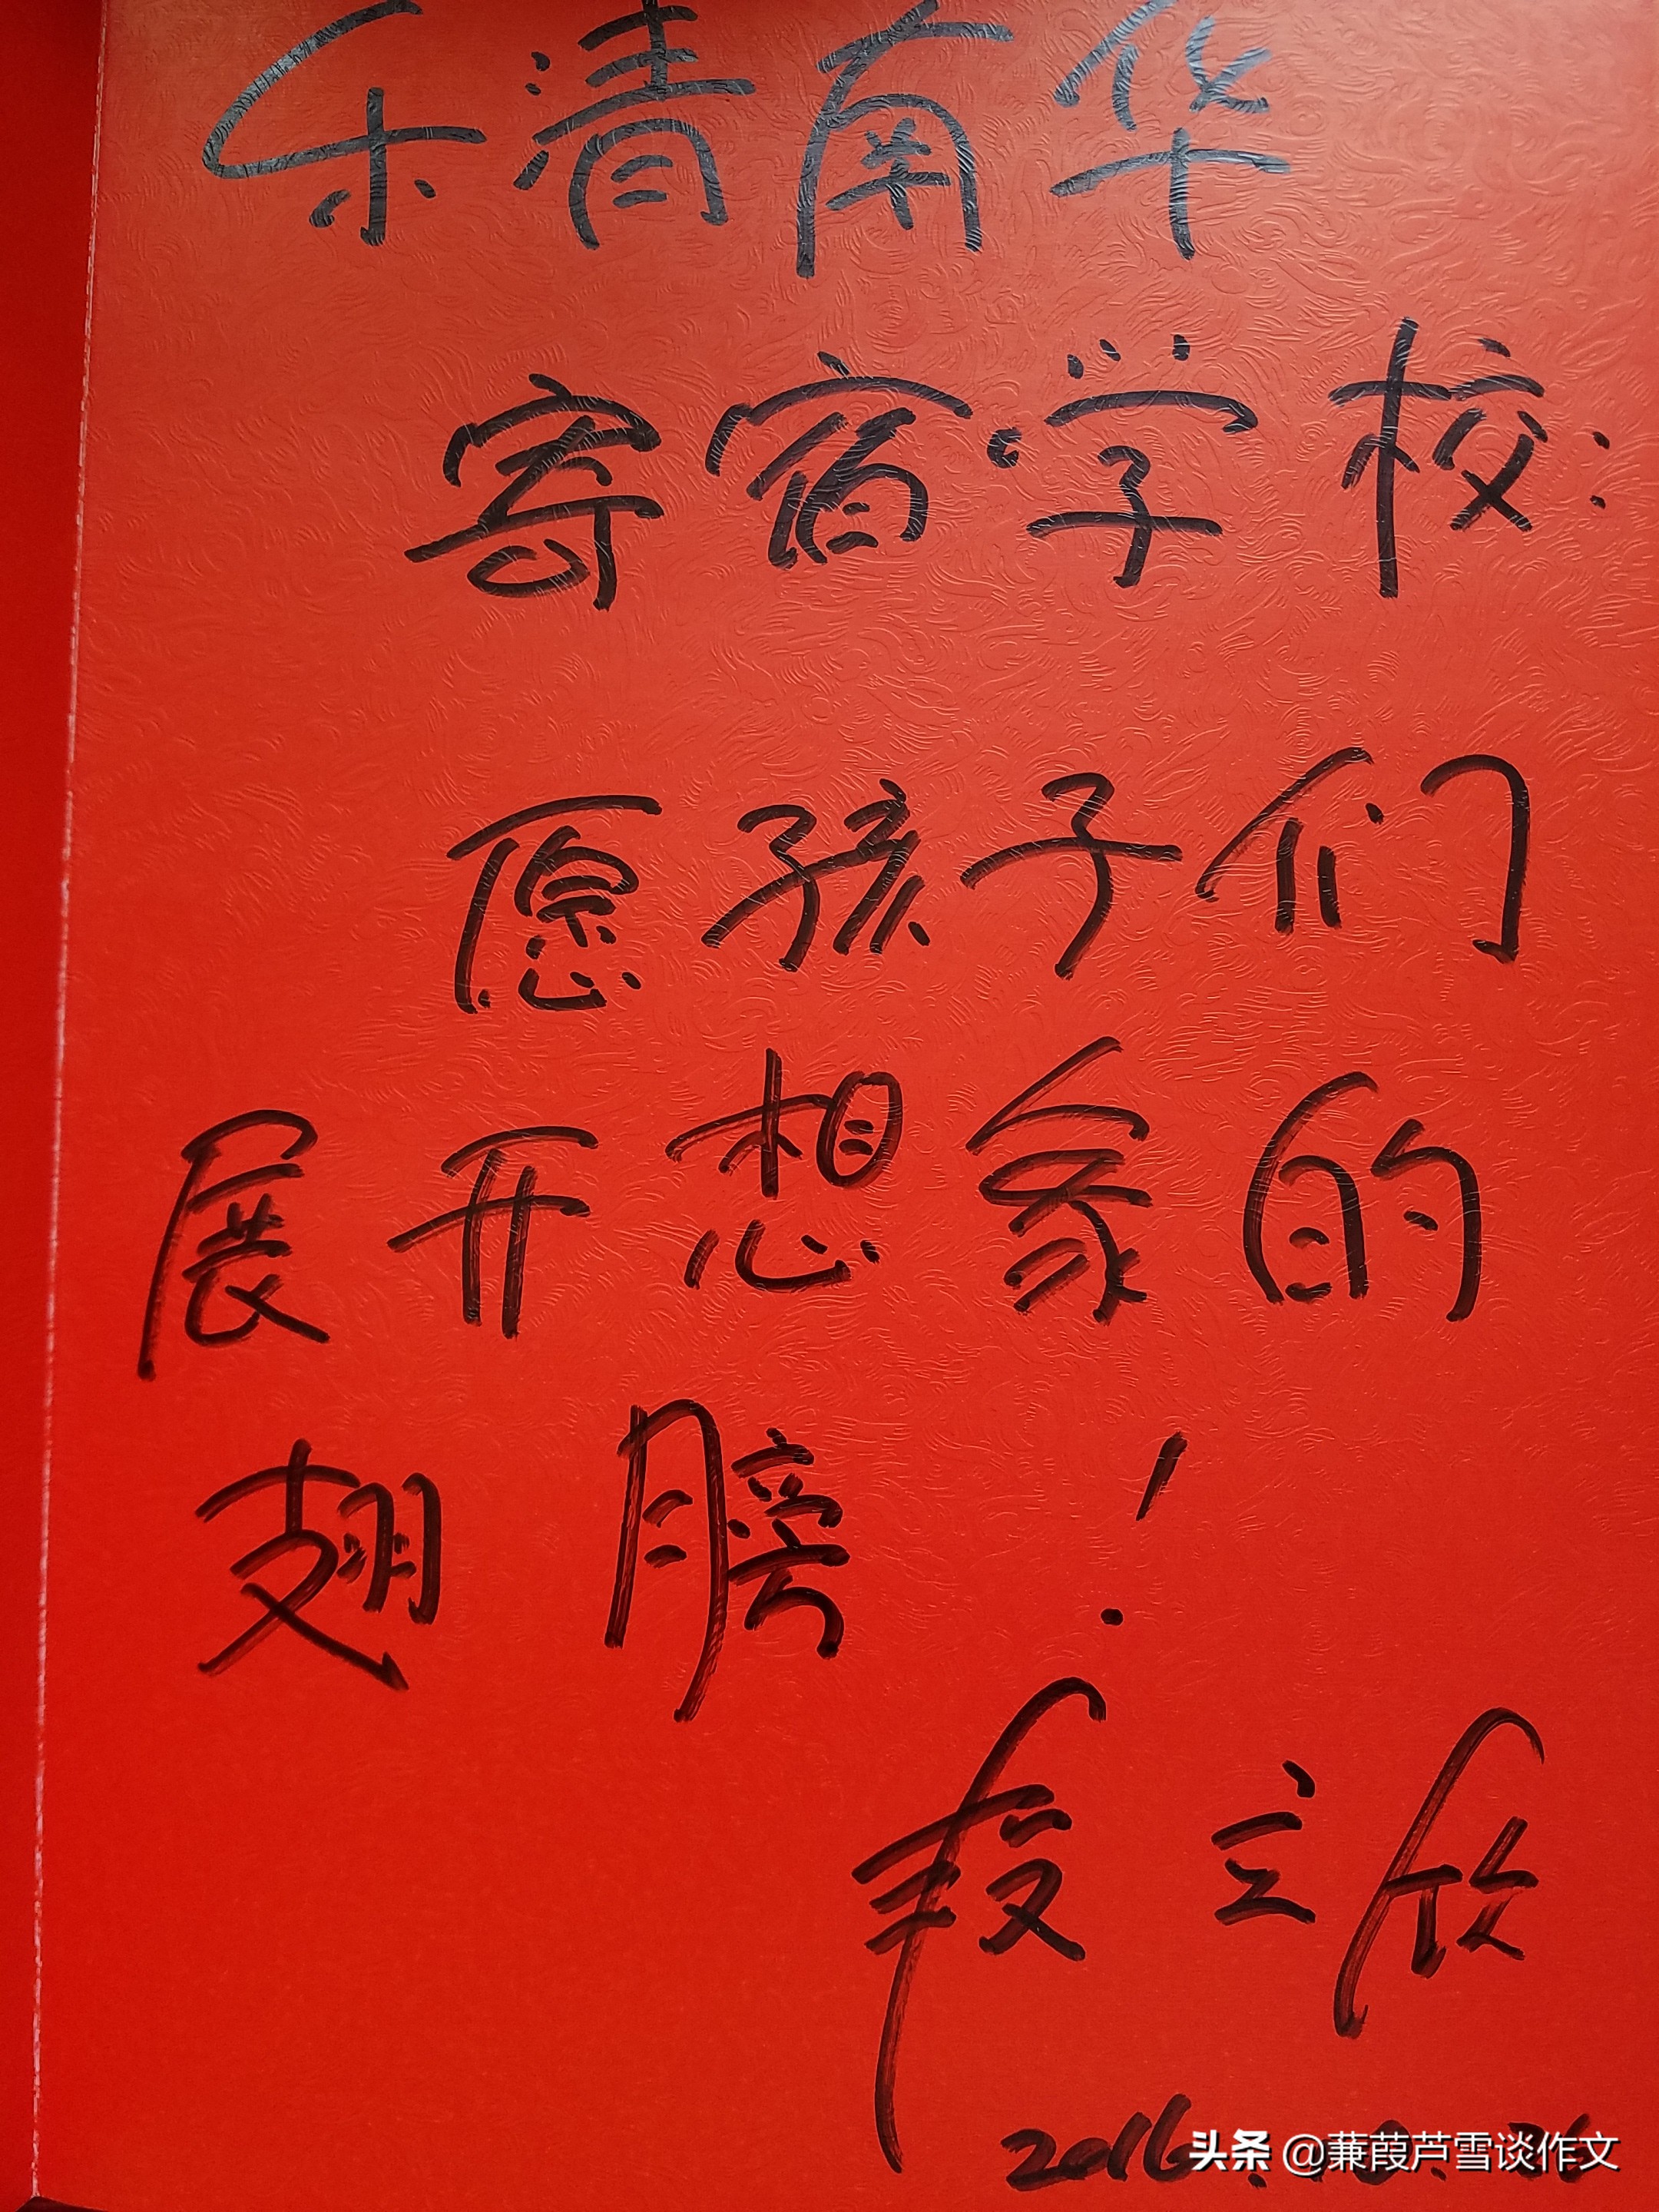 乐清南华
寄宿学校:
愿孩子们
展开想象的
翅膀!
段立欣
2016.10.26
头条 @蒹葭芦雪谈作文